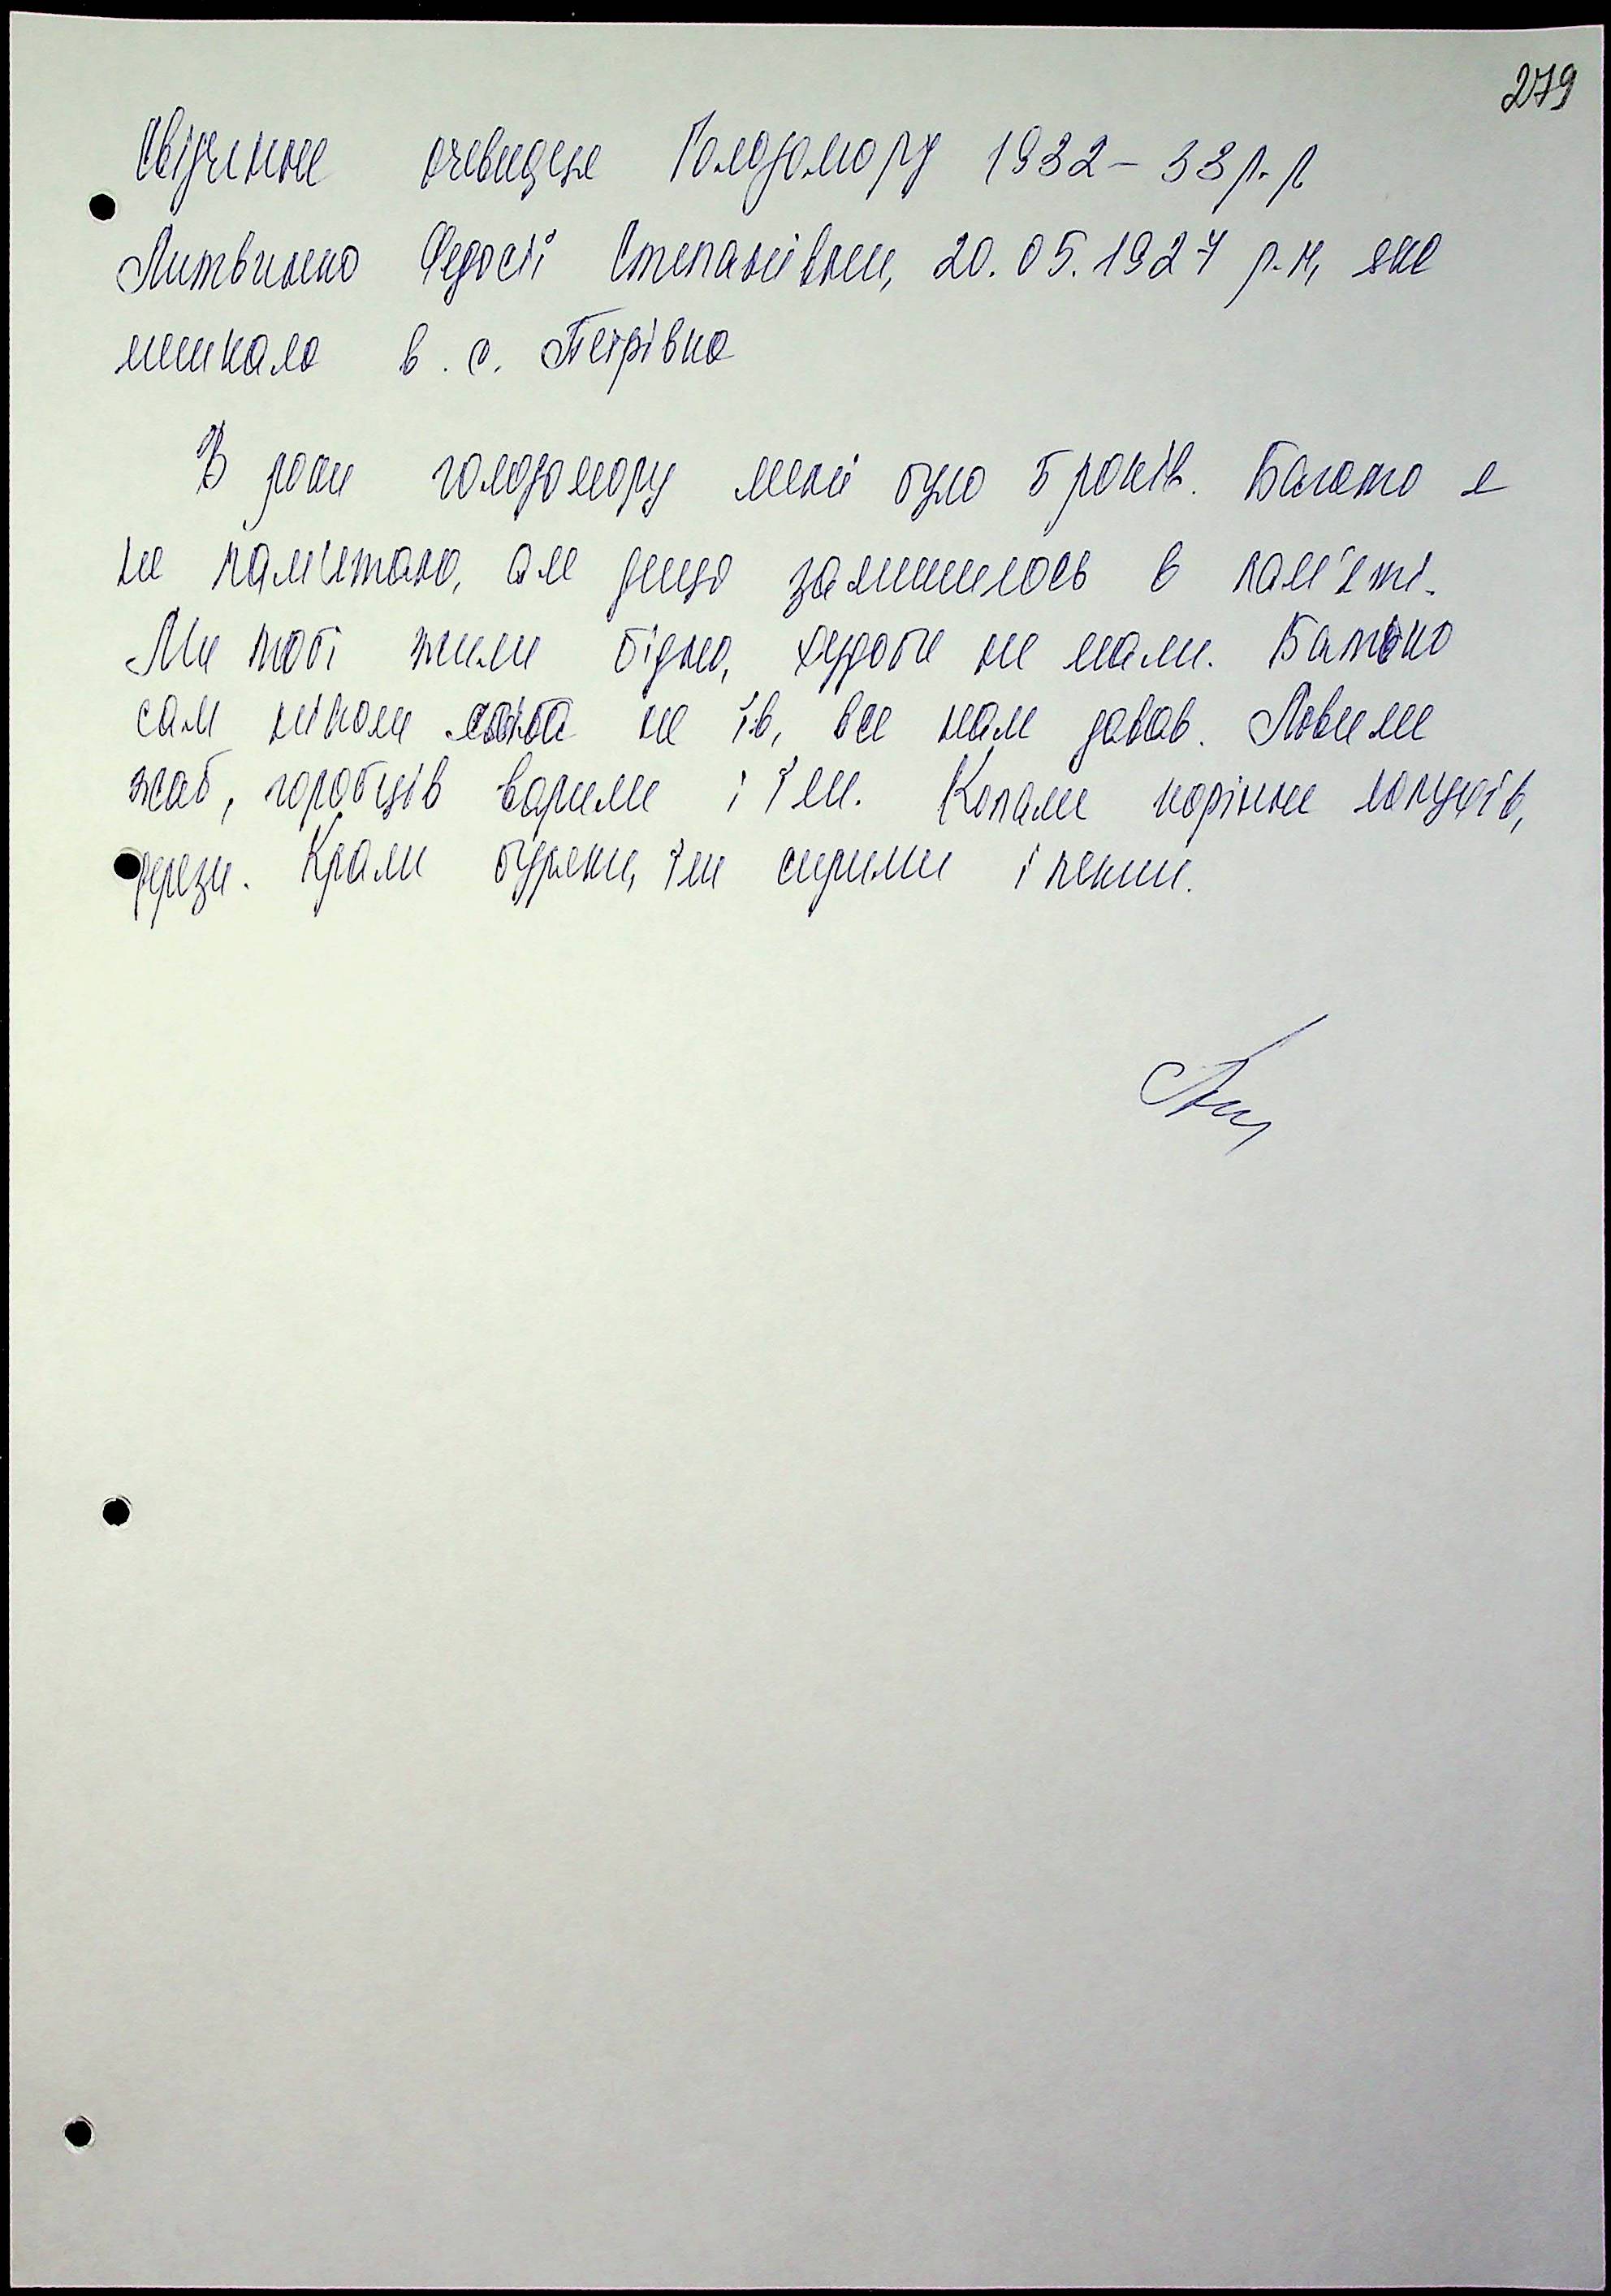 279
Свідчення очевидця Голодомору 1932-33 р.р.
Литвиненко Федосії Степанівни, 20.05.1927 р.н, яка
мешкала в. с. Петрівка
В роки голодомору мені було 5 років. Багато я
не пам'ятаю, але дещо залишилось в пам'яті.
Ми тобі жили бідно, худоби не мали. Батько
сам ніколи не їв, все нам давав. Ловили
жаб, горобців варили і їли. Копали коріння лопухів,
рези. Крали буряки, їли сирими і пекли.